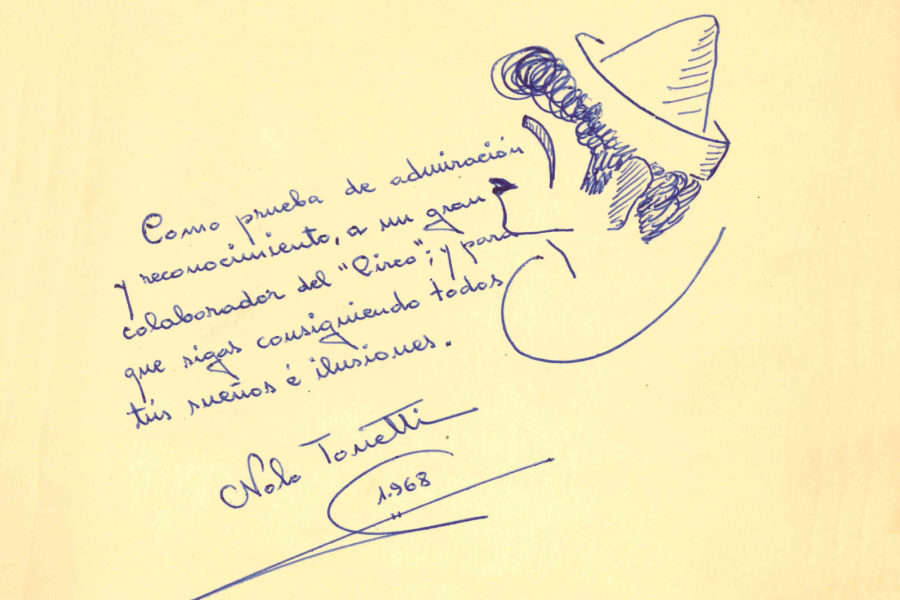 Como prueba de admiración
y reconocimiento, a un gran
colaborador del "Circo"; y para
que sigas consiguiendo todos
tús sueños é ilusiones.
Nolo Tonetti
1.968